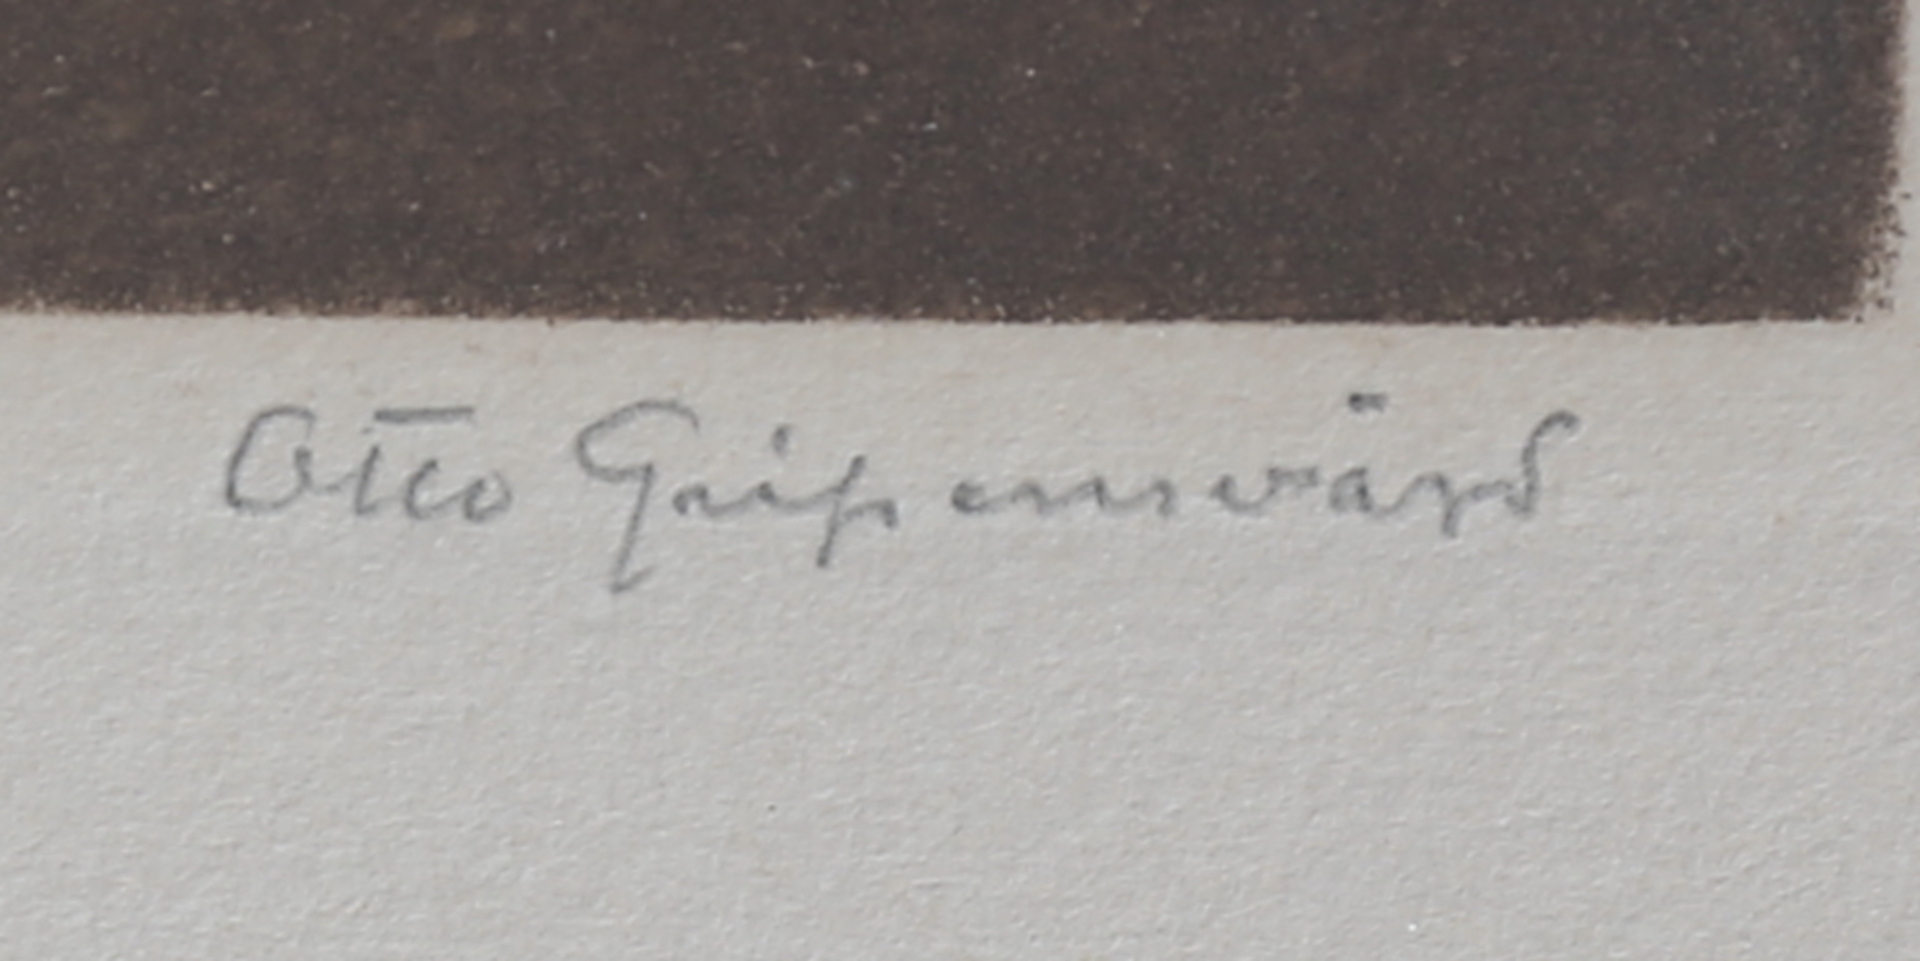 Otto Gripensvärd